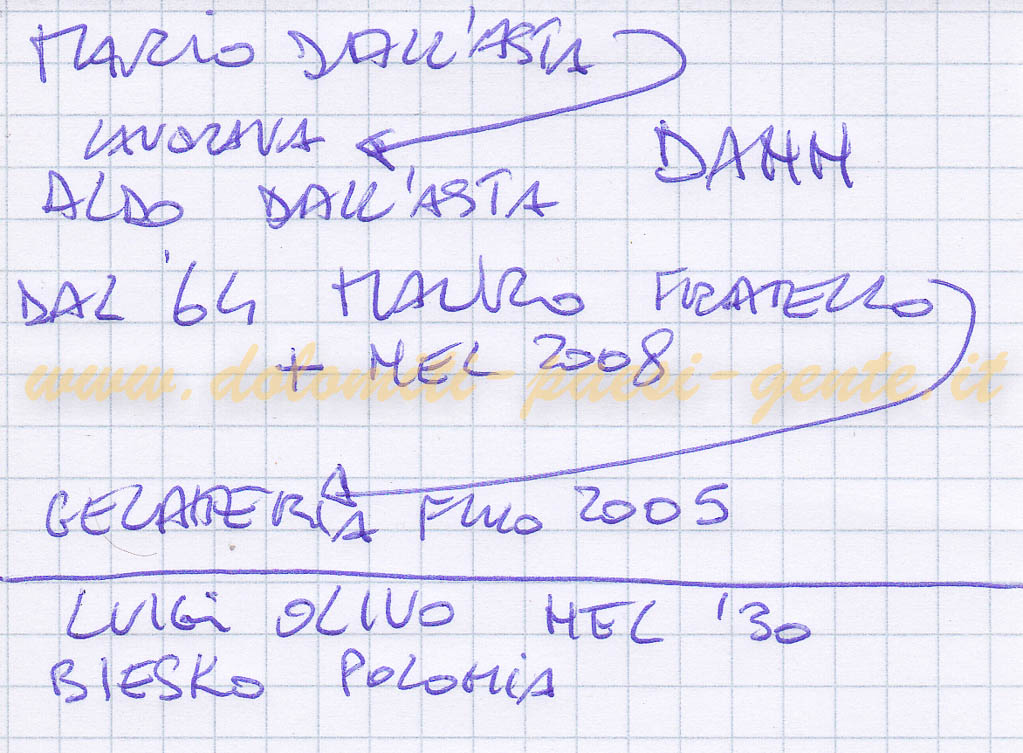 MARIO DALL'ASTA
LAVORAVA
DAMM
ALDO DALL'ASTA
DAL '64 MAURO FRATELLO
+ MEL 2008
www.dolomiti-paesi-gente.it
GELATERIA FINO 2005
LUIGI OLIVO MEL '30
BIESKO POLONIA